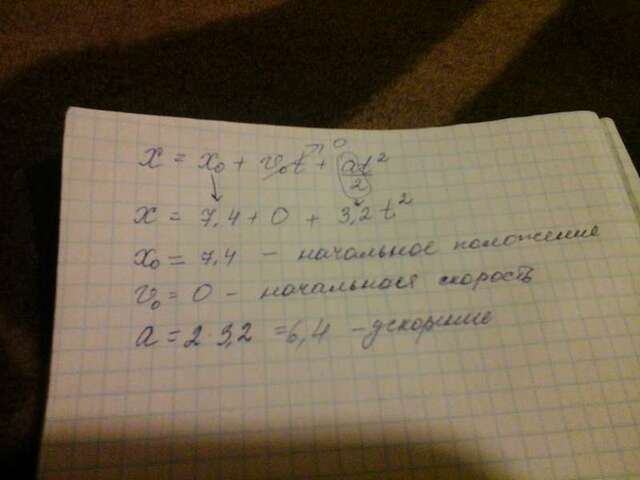 x = x₀ + v₀t →0 + at²/2
x = 7,4 + 0 + 3,2 t²
x₀ = 7,4 – начальное положение
v₀ = 0 – начальная скорость
a = 2·3,2 = 6,4 – ускорение